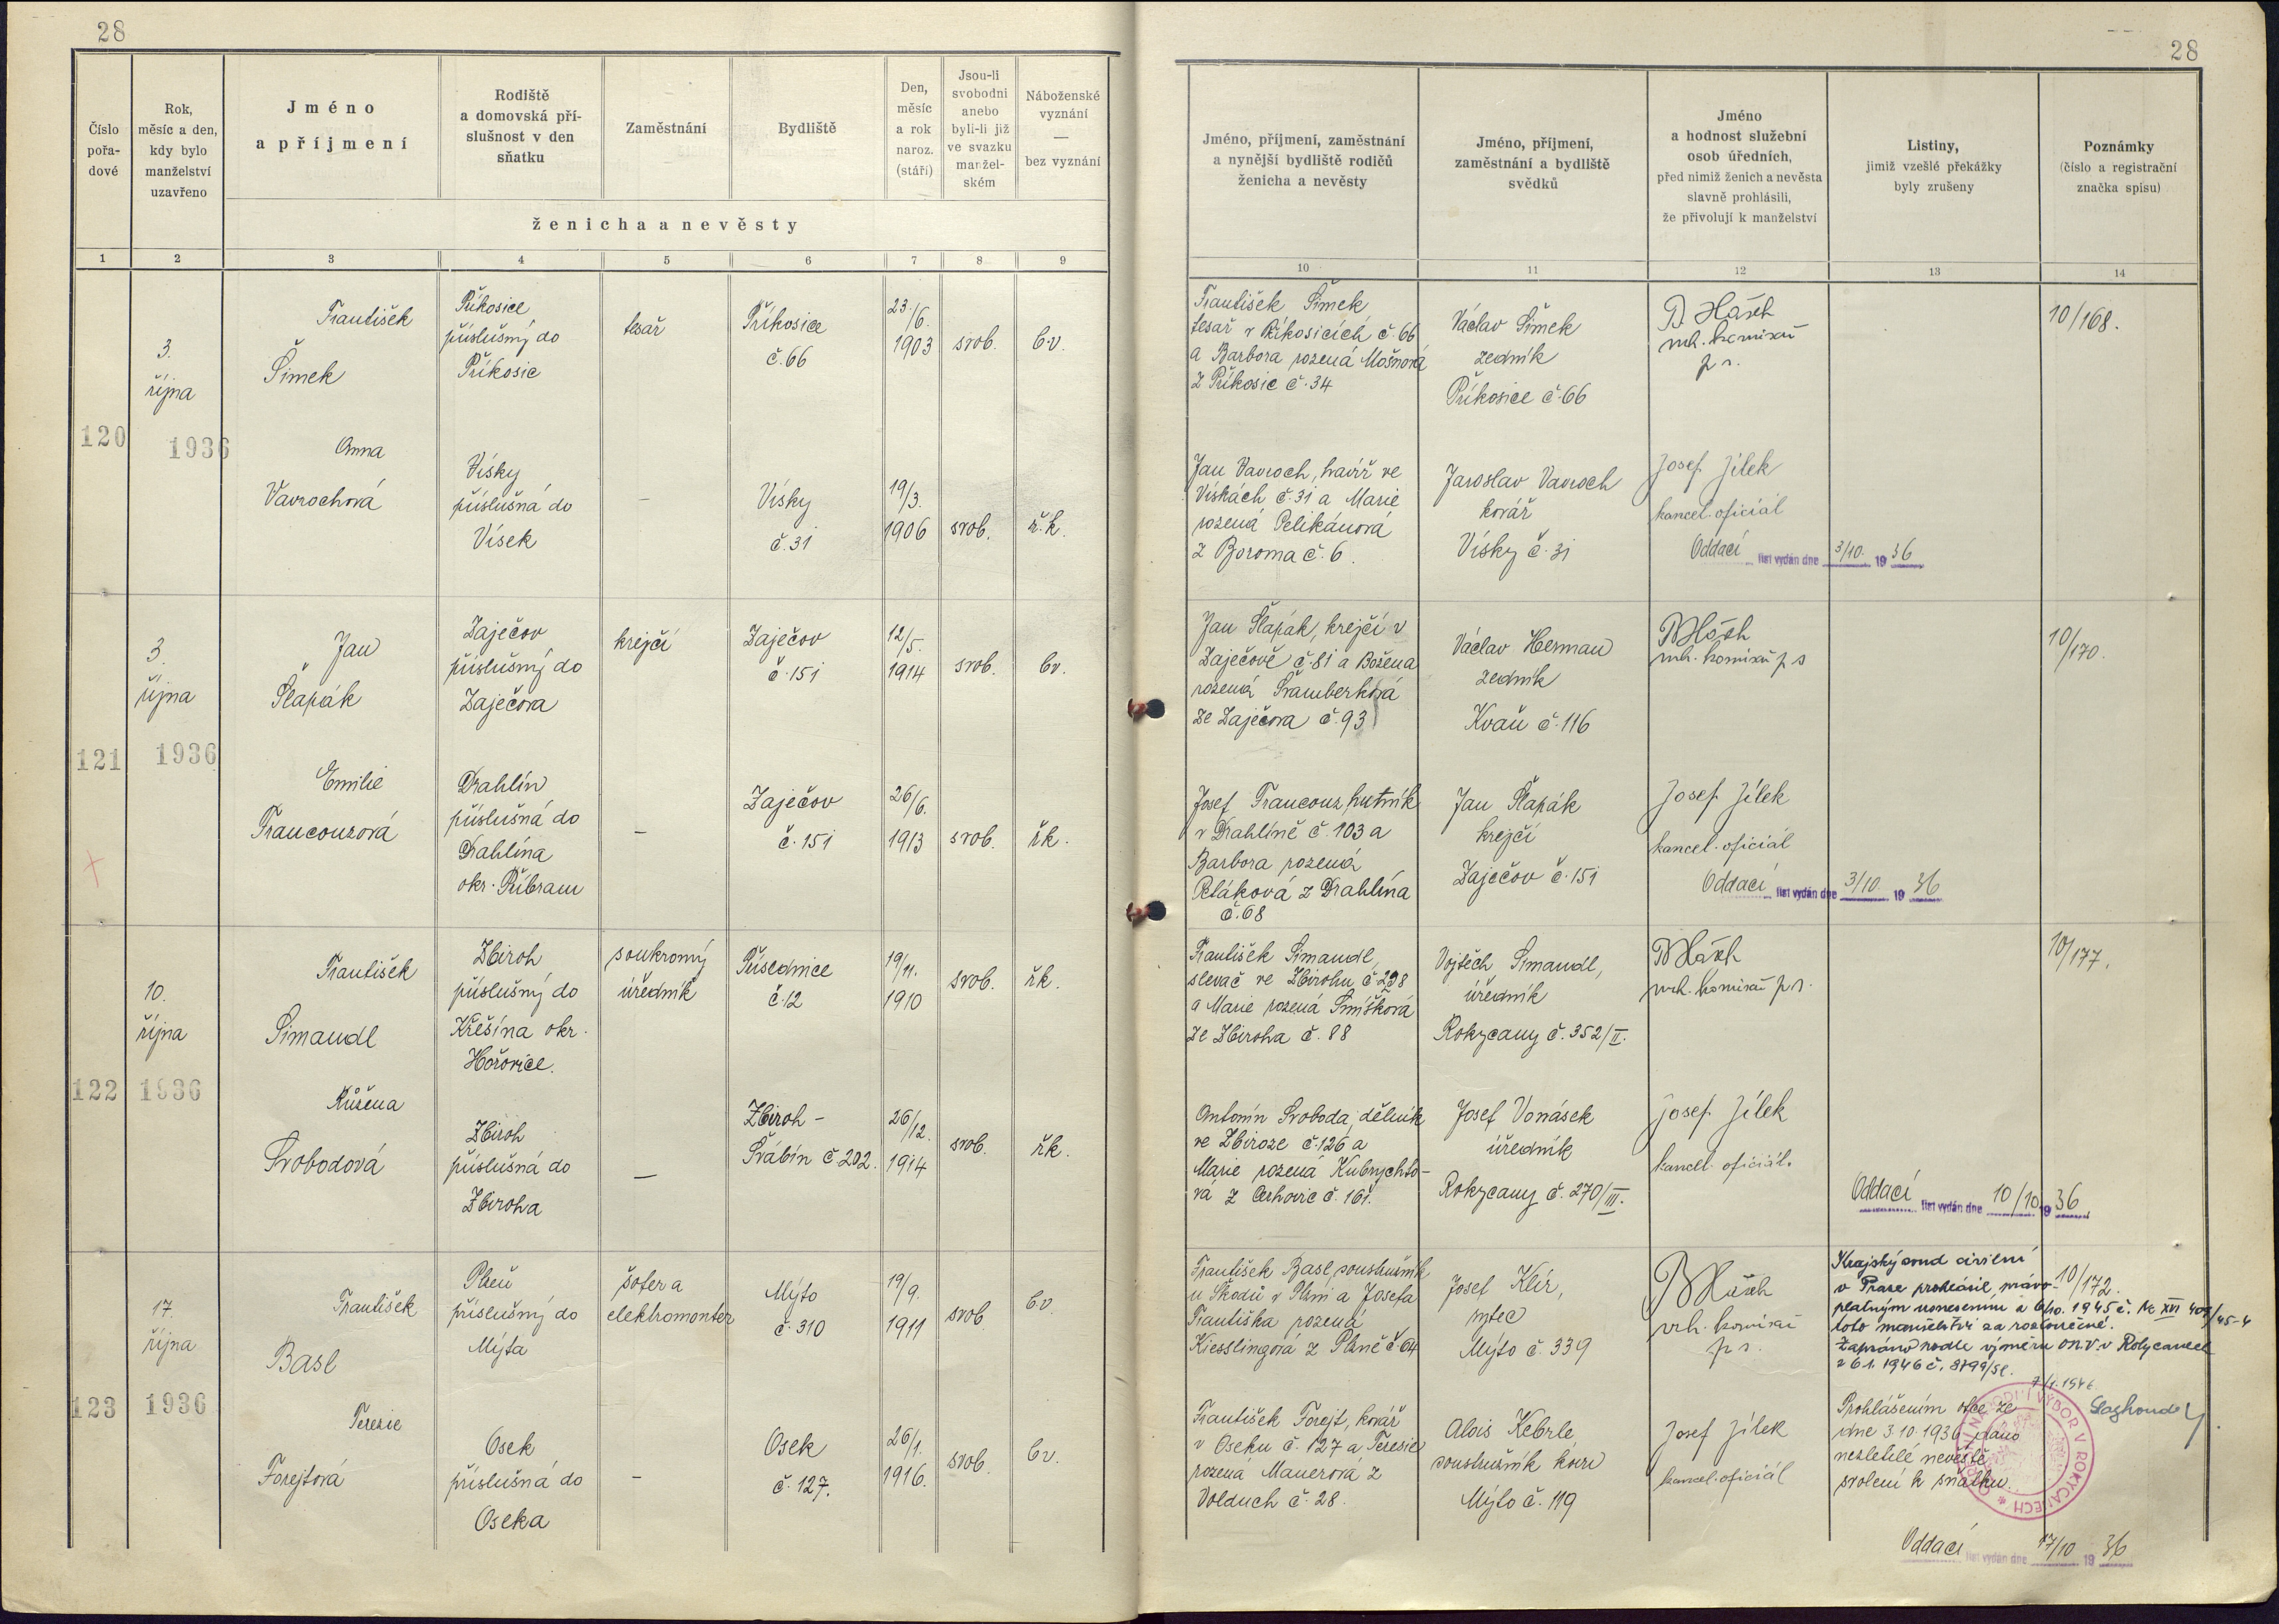 28
28
Číslo
pořa-
dové
Rok,
měsíc a den,
kdy bylo
manželství
uzavřeno
Jméno
a příjmení
Rodiště
a domovská pří-
slušnost v den
sňatku
Zaměstnání
Bydliště
Den,
měsíc
a rok
naroz.
(stáří)
Jsou-li
svobodni
anebo
byli-li již
ve svazku
manžel-
ském
Náboženské
vyznání
—
bez vyznání
ženicha a nevěsty
Jméno, příjmení, zaměstnání
a nynější bydliště rodičů
ženicha a nevěsty
Jméno, příjmení,
zaměstnání a bydliště
svědků
Jméno
a hodnost služební
osob úředních,
před nimiž ženich a nevěsta
slavně prohlásili,
že přivolují k manželství
Listiny,
jimiž vzešlé překážky
byly zrušeny
Poznámky
(číslo a registrační
značka spisu)
1 2 3 4 5 6 7 8 9
10 11 12 13 14
120
3.
října
1936
František
Šimek
Příkosice,
příslušný do
Příkosic
tesař
Příkosice
č. 66
23./6.
1903
svob.
b.v.
František Šimek
tesař v Příkosicích č. 66
a Barbora rozená Mošnová
z Příkosic č. 34
Václav Šimek
zedník
Příkosice č. 66
vrh. komisař
p. s.
10/168.
Anna
Vavrochová
Vísky
příslušná do
Vísek
—
Vísky
č. 31
19/3.
1906
svob.
ř.k.
Jan Vavroch, havíř ve
Vískách č. 31 a Marie
rozená Pelikánová
z Boroma č. 6.
Jaroslav Vavroch
kovář
Vísky č. 31
Josef Jílek
kancel. oficiál
Oddací list vydán dne 3/10. 1936
121
3.
října
1936
Jan
Šlapák
Zaječov
příslušný do
Zaječova
krejčí
Zaječov
č. 151
12/5.
1914
svob.
bv.
Jan Šlapák, krejčí v
Zaječově č. 81 a Božena
rozená Šramberková
ze Zaječova č. 93
Václav Herman
zedník
Kvaň č. 116
vrh. komisař p. s
10/170.
Emilie
Francouzová
Drahlín
příslušná do
Drahlína
okr. Příbram
—
Zaječov
č. 151
26/6.
1913
svob.
řk.
Josef Francouz, hutník
v Drahlíně č. 103 a
Barbora rozená
Petáková z Drahlína
č. 68
Jan Šlapák
krejčí
Zaječov č. 151
Josef Jílek
kancel. oficiál
Oddací list vydán dne 3/10. 1936
122
10.
října
1936
František
Simandl
Zbiroh
příslušný do
Křešína okr.
Hořovice.
soukromý
úředník
Přísednice
č. 12
19/11.
1910
svob.
řk.
František Simandl,
slevač ve Zbirohu č. 298
a Marie rozená Smíšková
ze Zbiroha č. 88
Vojtěch Simandl,
úředník
Rokycany č. 352/II.
vrh. komisař p. s.
10/177.
Růžena
Svobodová
Zbiroh
příslušná do
Zbiroha
—
Zbiroh -
Švabín č. 202.
26/12.
1914
svob.
řk.
Antonín Svoboda, dělník
ve Zbiroze č. 126 a
Marie rozená Kubrychto-
vá z Cerhovic č. 161.
Josef Vonásek
úředník
Rokycany č. 270/III.
Josef Jílek
kancel. oficiál.
Oddací list vydán dne 10/10 1936
123
17.
října
1936
František
Basl
Plzeň
příslušný do
Mýta
šofer a
elektromontér
Mýto
č. 310
19/9.
1911
svob
b.v.
František Basl, soustružník
u Škodů v Plzni a Josefa
Františka rozená
Kiesslingová z Plzně č. 64
Josef Klír,
rytec
Mýto č. 339
vrh. komisař
p. s.
Krajský soud civilní
v Praze prohlásil právo-
platným usnesením z 6/10. 1945 č. Nc XVI 409/45-4
toto manželství za rozloučené.
Zapsáno podle výměru ONV v Rokycanech
z 6.1.1946 č. 8799/Sl.
7/1.1946
10/172.
Terezie
Forejtová
Osek
příslušná do
Oseka
—
Osek
č. 127.
26/1.
1916.
svob.
bv.
František Forejt, kovář
v Oseku č. 127 a Terezie
rozená Mauerová z
Volduch č. 28.
Alois Kebrle
soustružník kovů
Mýto č. 119
Josef Jílek
kancel. oficiál
Prohlášením otce ze
dne 3.10.1936 dáno
nezletilé nevěstě
svolení k sňatku.
OKRESNÍ NÁRODNÍ VÝBOR V ROKYCANECH
Oddací list vydán dne 17/10 1936